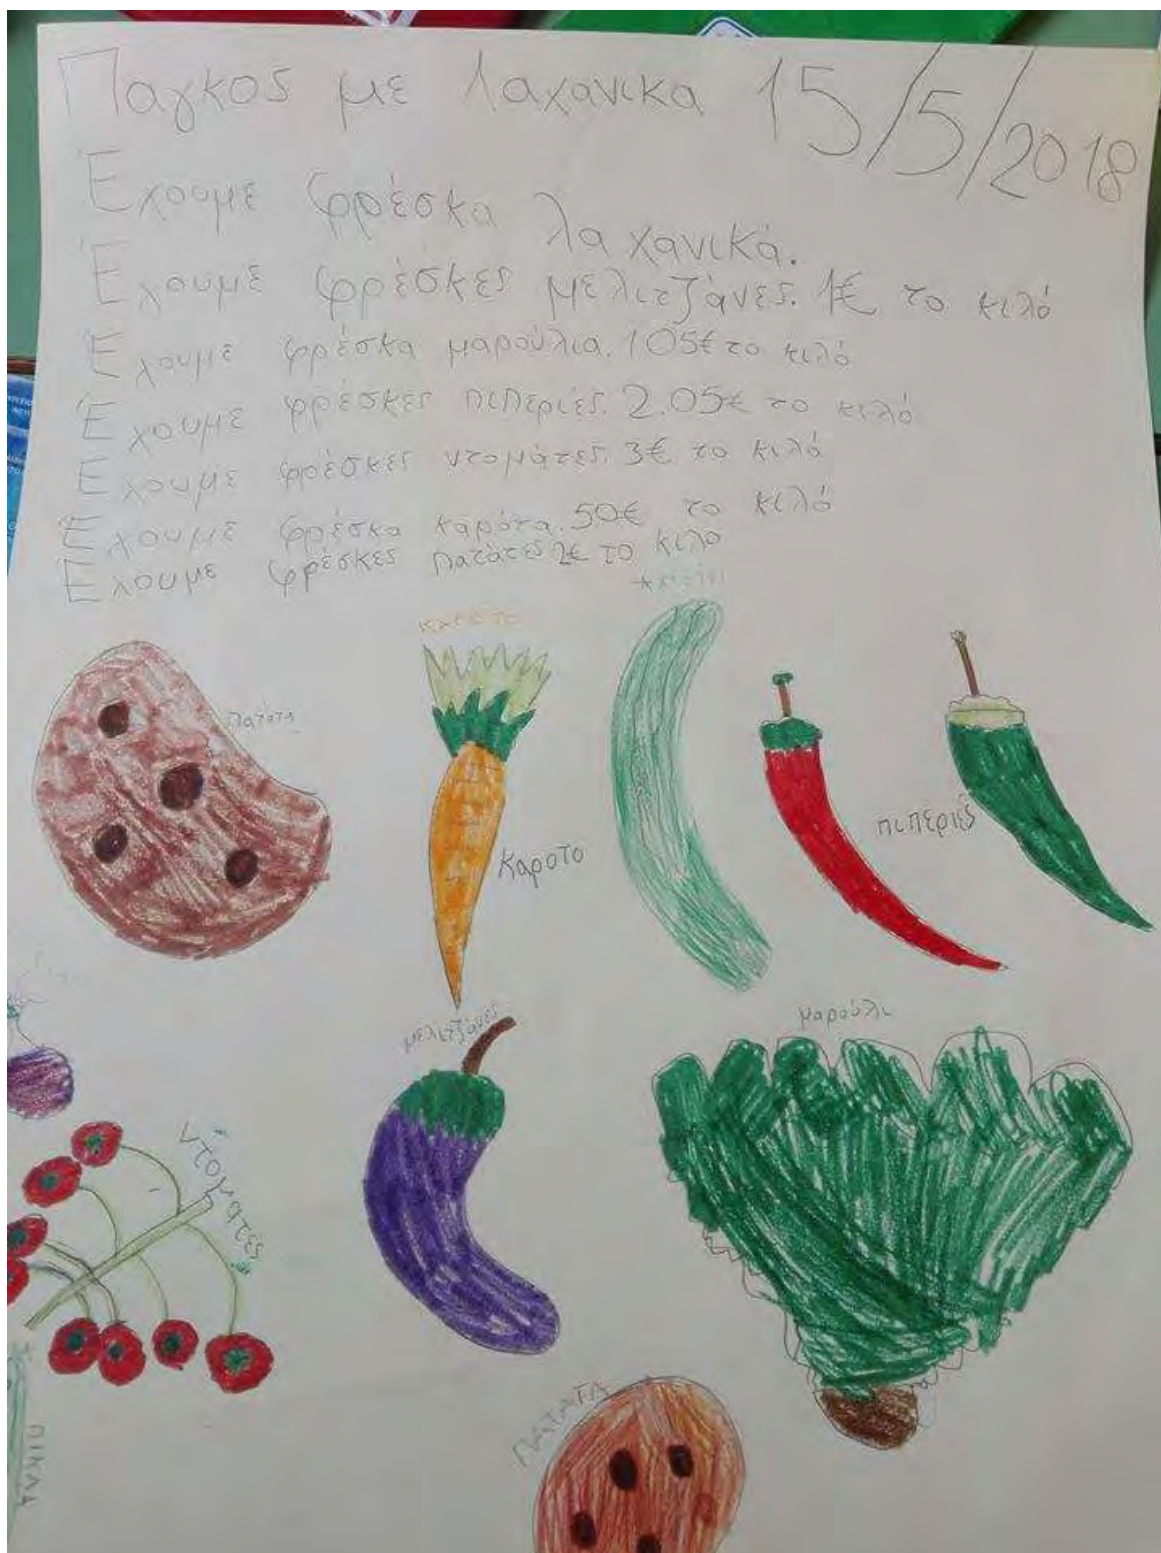 Παγκος με λαχανικα 15/5/2018
Έχουμε φρέσκα λαχανικά.
Έχουμε φρέσκες μελιτζάνες. 1€ το κιλό
Έχουμε φρέσκα μαρούλια. 105€ το κιλό
Έχουμε φρέσκες πιπεριές. 2.05€ το κιλό
Έχουμε φρέσκες ντομάτες. 3€ το κιλό
Έχουμε φρέσκα καρότα. 50€ το κιλό
Έχουμε φρέσκες πατάτες 2€ το κιλό
ΚΑΡΟΤΟ
πατάτα
καροτο
πιπέριές
μελιτζάνες
μαρούλι
ντοματες
ΠΑΤΑΤΑ